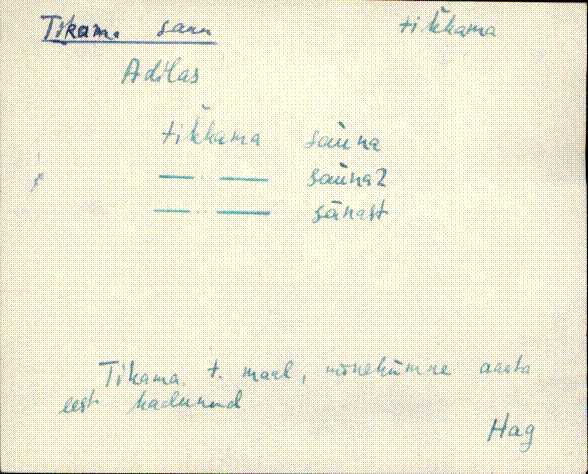 Tikama saun tik̆kama
Adilas
tik̆kama saùna
— " — saùna2
— " — sānast
Tikama t. maal, mõnekümne aasta
eest kadunud
Hag